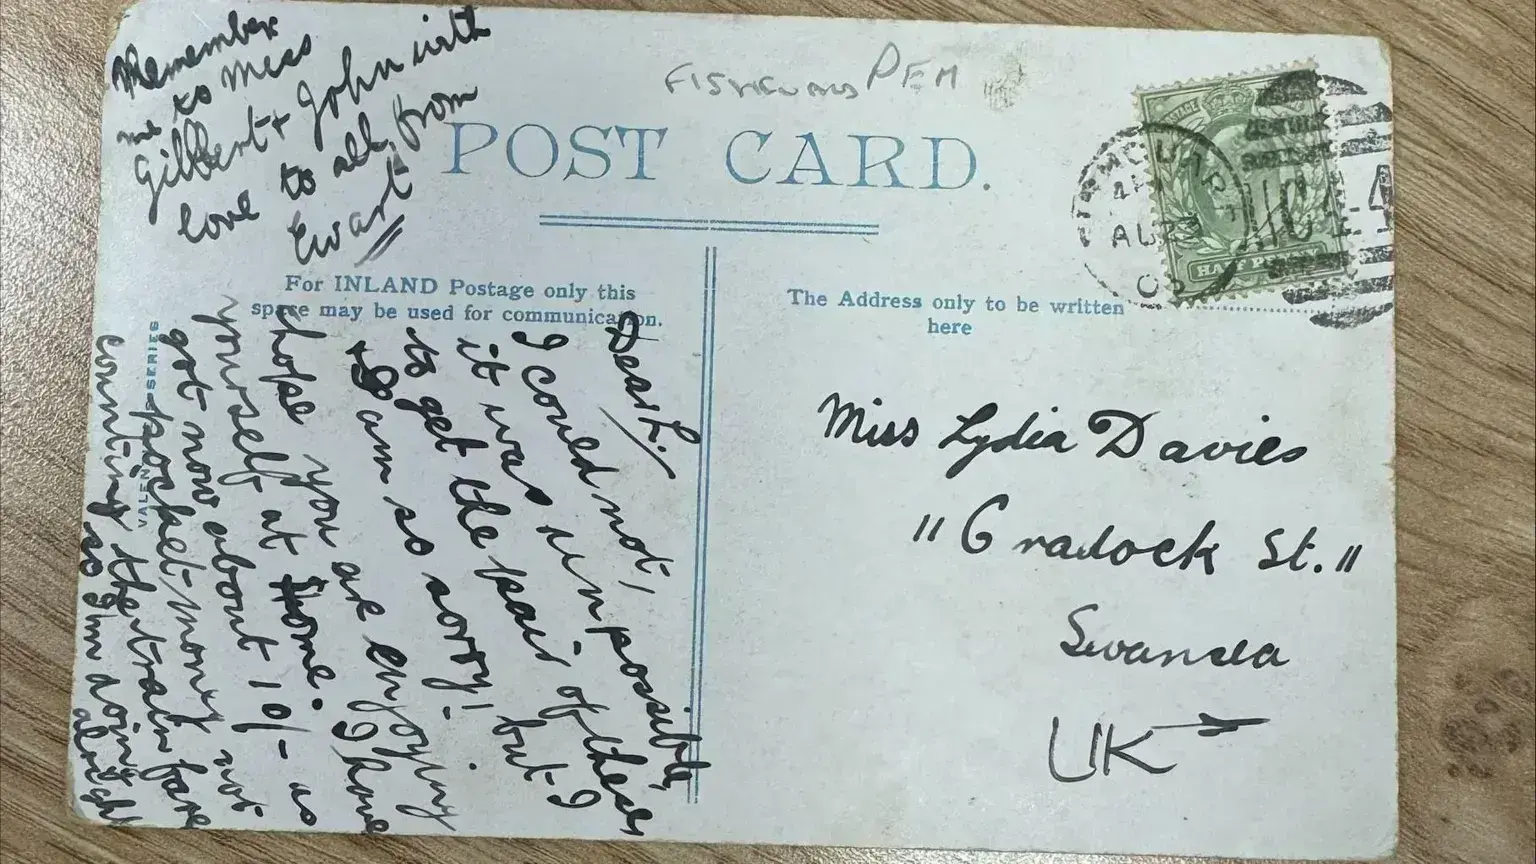 Remember
me to Miss
Gilbert + John with
love to all from
Ewart
PEM
POST CARD.
For INLAND Postage only this
space may be used for communication.
The Address only to be written
here
HALF PENNY
AUR 23
Dear L.
I could not,
it was impossible
to get the pair of these
& I am so sorry! but I
hope you are enjoying
yourself at Home. I have
got now about 10/- as
pocket money not
counting the train fare
so I'm doing
alright
SERIES
Miss Lydia Davies
"Cradock St."
Swansea
UK